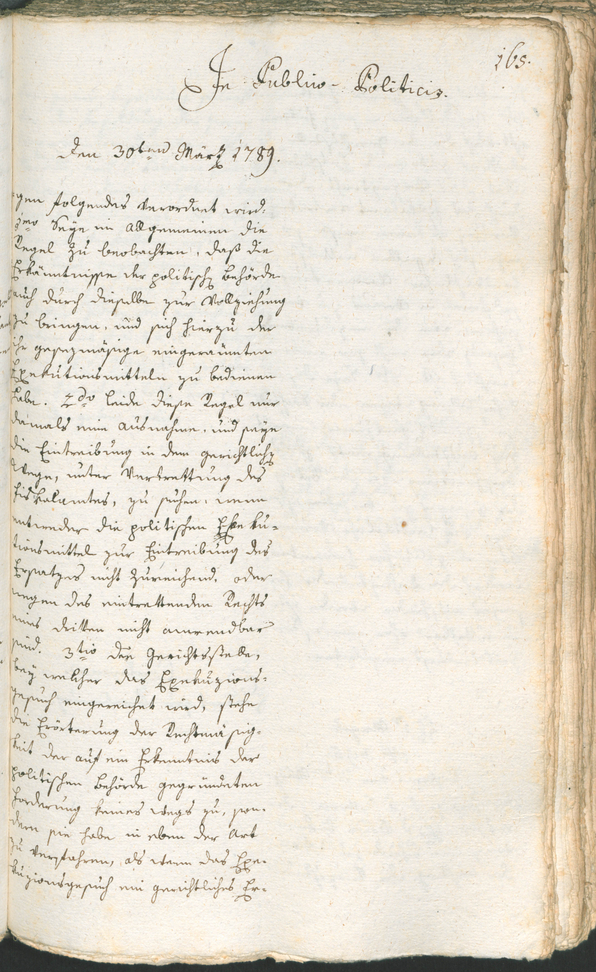 165.
In Publico-Politicis.
Den 30ten März 1789.
gen folgendes verordnet wird,
1mo Seye im Allgemeinen die
Regel zu beobachten, daß die
Erkänntnisse der politisch Behörde
auch durch dieselbe zur Vollziehung
zu bringen, und sich hierzu der
ihr gesezmäsige eingeraumten
Exekutionsmitteln zu bedienen
habe. 2do leide diese Regel nur
damals eine Ausnahme, und seye
die Eintreibung in dem gerichtlich
Wege, unter Vertrettung des
Fiskalamtes, zu suchen, wenn
entweder die politischen Exeku-
tionsmittel zur Eintreibung des
Ersatzes nicht zureichend, oder
wegen des eintrettenden Rechts
eines dritten nicht anwendbar
sind. 3tio Der Gerichtsstelle,
bey welcher das Exekuzions-
gesuch eingereichet wird, stehe
die Erörterung der Rechtmäsig-
keit der auf ein Erkenntnis der
politischen Behörde gegründeten
Forderung keines wegs zu, son-
dern sie habe in eben der Art
zu verfahren, als wenn das Exe-
kuzionsgesuch ein gerichtliches Er-